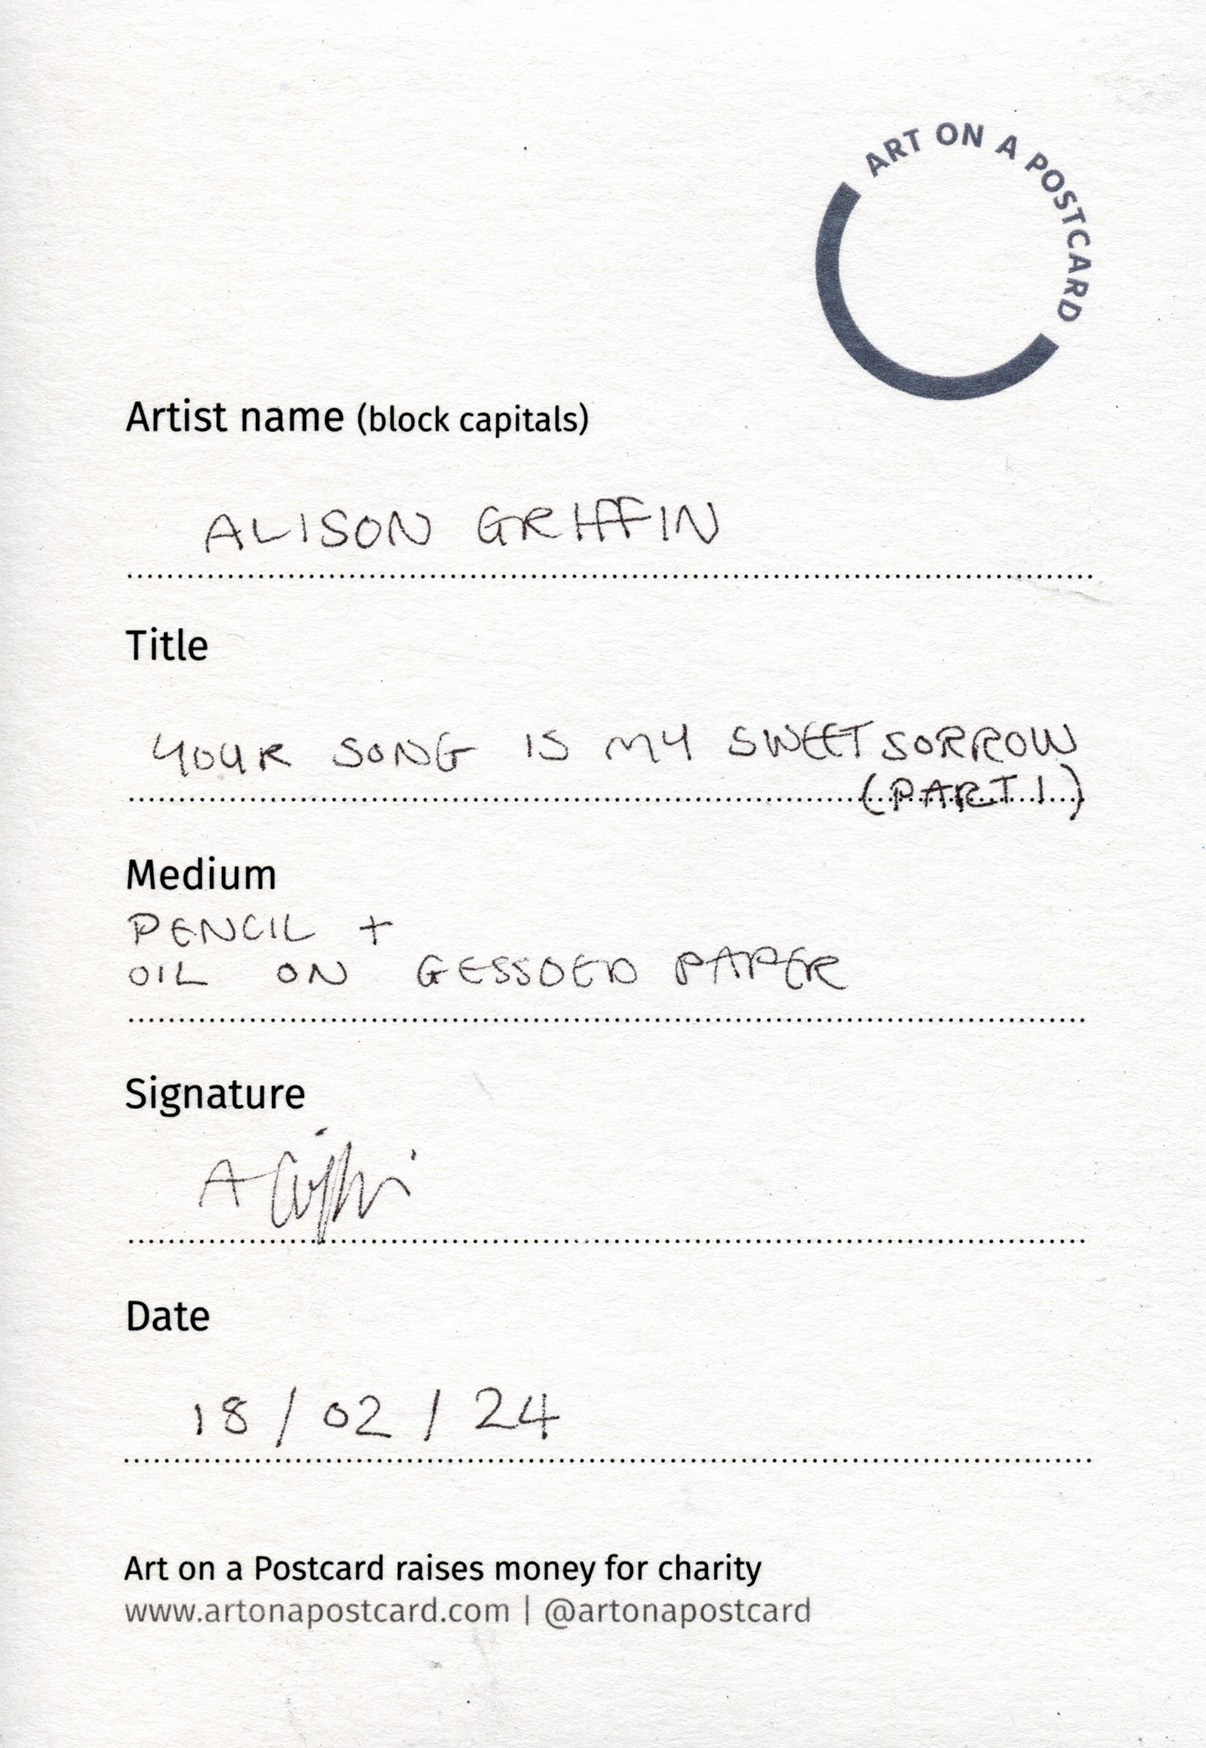 ART ON A POSTCARD
Artist name (block capitals)
ALISON GRIFFIN
Title
YOUR SONG IS MY SWEET SORROW
(PART 1)
Medium
PENCIL +
OIL ON GESSOED PAPER
Signature
A Griffin
Date
18 / 02 / 24
Art on a Postcard raises money for charity
www.artonapostcard.com | @artonapostcard